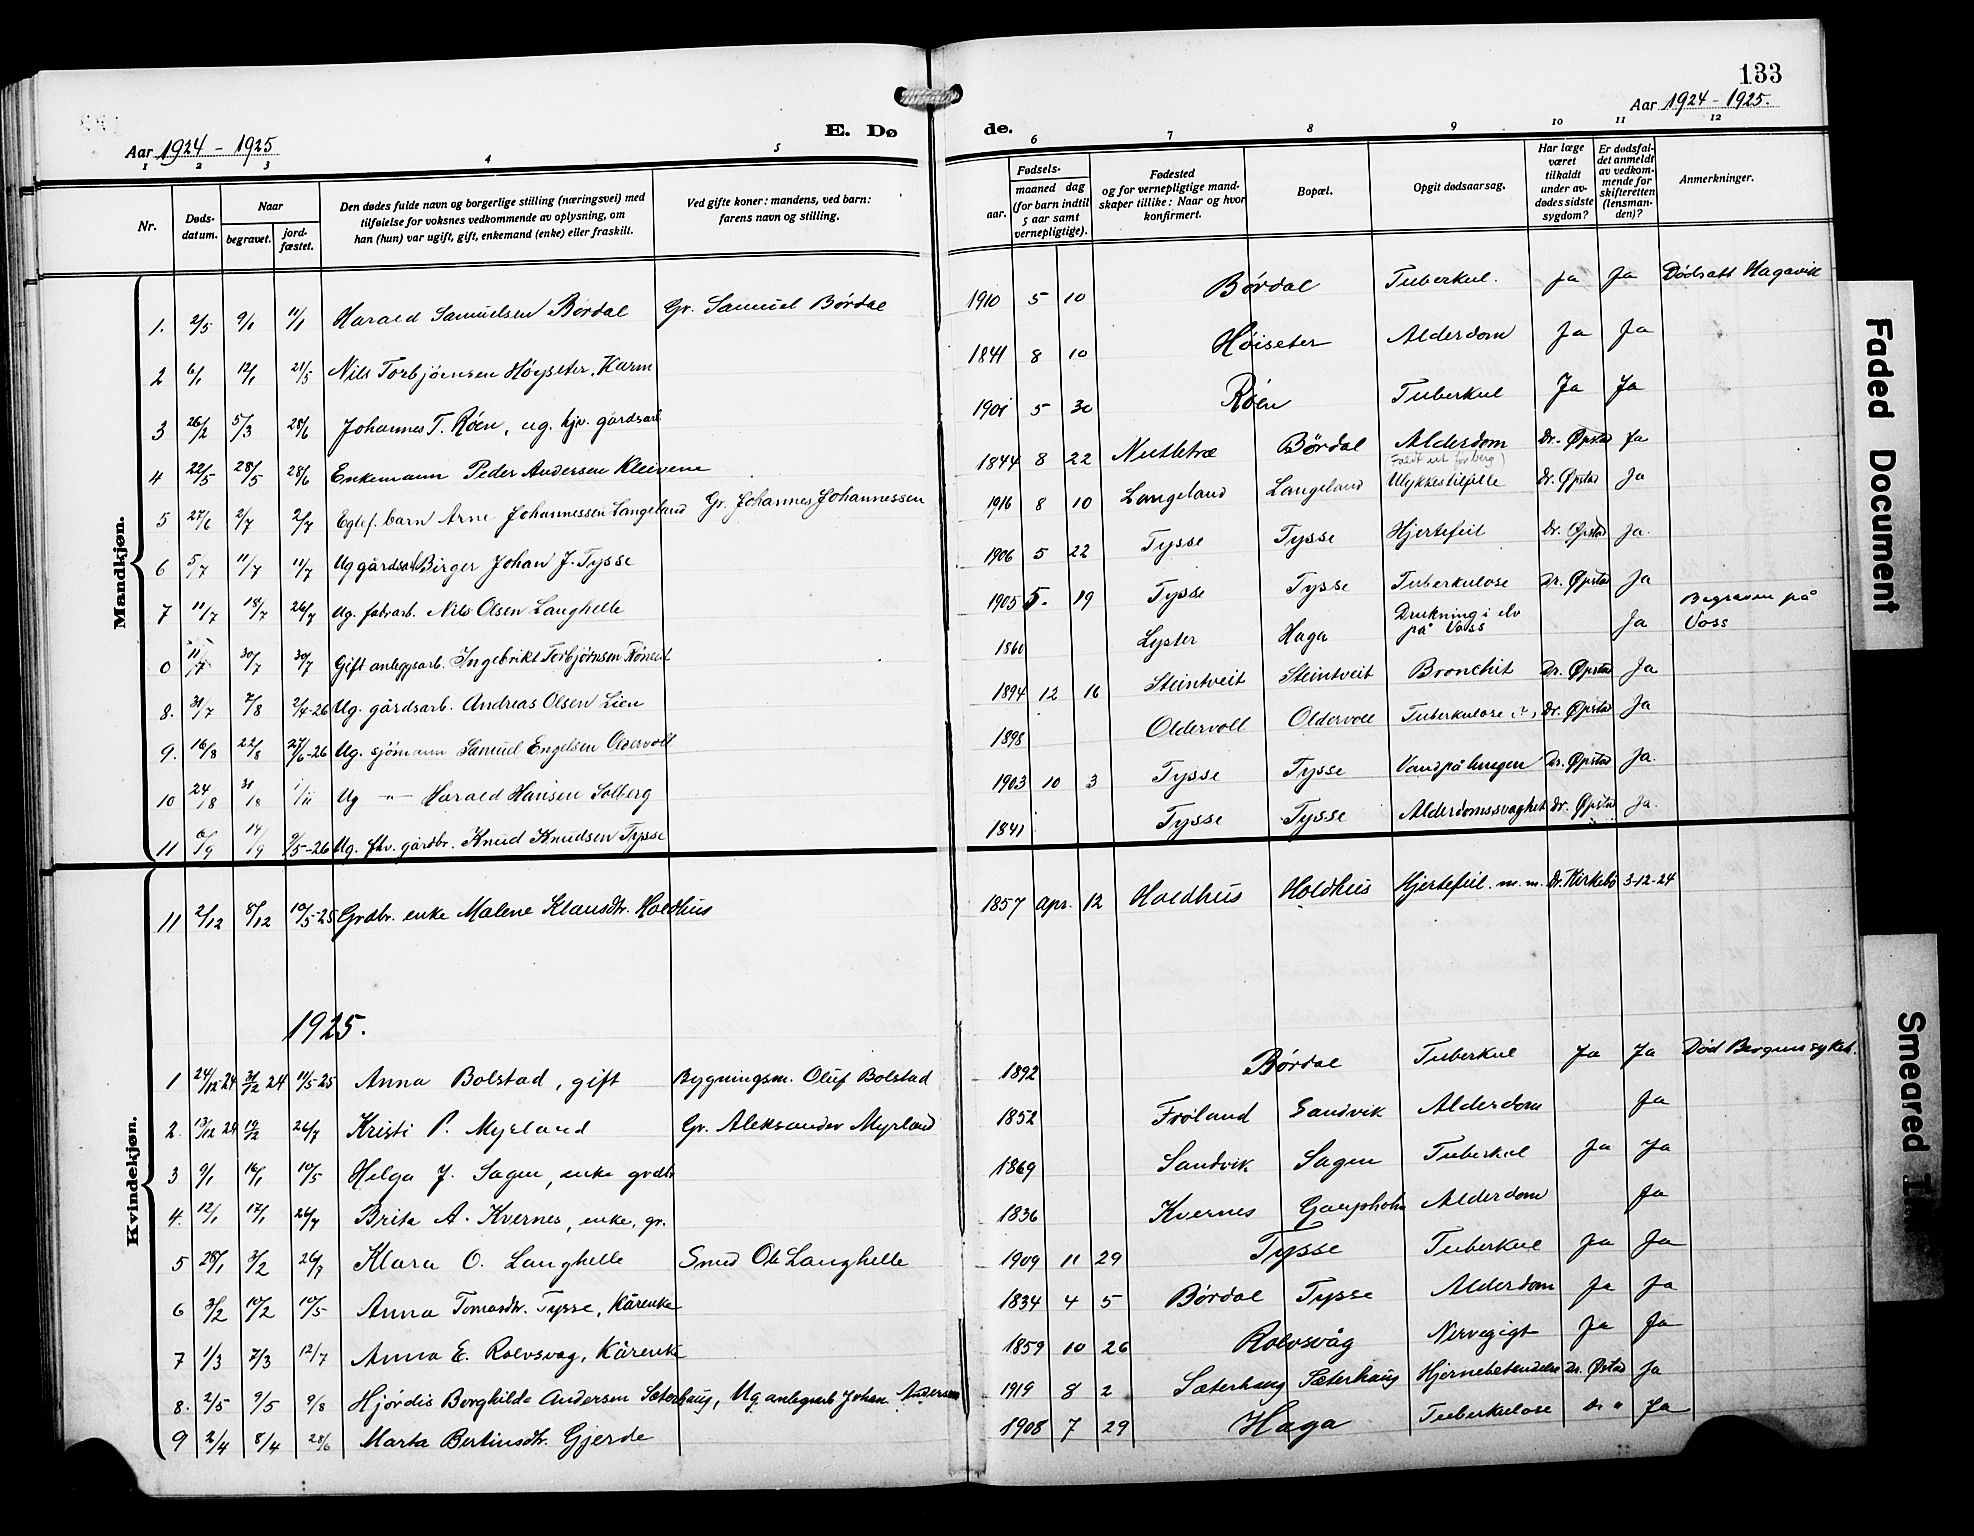 133
Aar 1924 - 1925
E. Dø
de.
Aar 1924 - 1925.
1 2 3 4 5 6 7 8 9 10 11 12
Nr.
Døds-
datum.
Naar
begravet.
jord-
fæstet.
Den dødes fulde navn og borgerlige stilling (næringsvei) med
tilføielse for voksnes vedkommende av oplysning, om
han (hun) var ugift, gift, enkemand (enke) eller fraskilt.
Ved gifte koner: mandens, ved barn:
farens navn og stilling.
Fødsels-
aar.
maaned dag
(for barn indtil
5 aar samt
vernepligtige).
Fødested
og for vernepligtige mand-
skaper tillike: Naar og hvor
konfirmert.
Bopæl.
Opgit dødsaarsag.
Har læge
været
tilkaldt
under av-
dødes sidste
sygdom?
Er dødsfal-
det anmeldt
av vedkom-
mende for
skifteretten
(lensman-
den)?
Anmerkninger.
Mandkjøn.
1. 2/5 9/1 11/1 Harald Samuelsen Børdal Gr. Samuel Børdal 1910 5 10 Børdal Tuberkul. ja Ja Dødsatt Hagavik
2 6/1 12/1 21/5 Nils Torbjørnsen Høyseter, Kårm 1841 8 10 Høiseter Alderdom Ja Ja
3 26/2 5/3 28/6 Johannes T. Røen, ug. hjv. gårdsarb 1901 5 30 Røen Tuberkul Ja Ja
4 22/5 28/5 28/6 Enkemann Peder Andersen Kleivene 1844 8 22 Nutletræ Børdal Alderdom Dr. Øpstad Ja
5 27/6 2/7 2/7 Egtef. barn Arne Johannessen Langeland Gr. Johannes Johannessen 1916 8 10 Langeland Langeland Faldt ut for berg) Ulykkestilfelle Dr. Øpstad Ja
6 5/7 11/7 11/7 Ug gårdsarb Birger Johan J. Tysse 1906 5 22 Tysse Tysse Hjertefeil Dr. Øpstad Ja.
7 11/7 18/7 26/7 Ug. fabrarb. Nils Olsen Langhelle 1905 5. 19 Tysse Tysse Tuberkulose Dr. Øpstad Ja
0 11/7 30/7 30/7 Gift anleggsarb. Ingebrikt Torbjørnsen 1860 Lyster Haga Drukning i elv på Voss Ja Begraven på Voss
8. 31/7 7/8 2/4-26 Ug. gårdsarb. Andreas Olsen Lien 1894 12 16 Steintveit Steintveit Bronchit Dr. Øpstad Ja
9. 16/8 22/8 27/6-26 Ug. sjømann Samuel Engelsen Oldervoll 1898 Oldervoll Oldervoll Tuberkulose (?) Dr. Øpstad Ja
10 24/8 31/8 1/11 Ug -"- Harald Hansen Solberg 1903 10 3 Tysse Tysse Vand på lungen Dr. Øpstad Ja.
11 6/9 14/9 9/5-26 Ug. fhv. gårdbr. Knud Knudsen Tysse 1841 Tysse Tysse Alderdomssvaghet Dr. Øpstad Ja.
Kvindekjøn.
11 2/12 8/12 10/5-25 Grdbr. enke Malene Klausdtr. Holdhus 1857 Apr. 12 Holdhus Holdhus Hjertefeil. m. m. Dr. Kirkebø 3-12-24
1925.
1 24/12 24 31/12 24 11/5-25 Anna Bolstad, gift Bygningsm. Oluf Bolstad 1892 Børdal Tuberkul Ja Ja Død Bergens sykeh.
2. 13/12 24 19/12 26/7 Kristi P. Myrland Gr. Aleksander Myrland 1852 Frøland Sandvik Alderdom Ja
3 9/1 16/1 10/5 Helga J. Sagen, enke grdbr 1869 Sandvik Sagen Tuberkul Ja Ja
4. 12/1 17/1 26/7 Brita A. Kvernes, enke, gr. 1836 Kvernes Gaupholm Alderdom Ja
5 28/1 3/2 26/7 Klara O. Langhelle Smed Ole Langhelle 1909 11 29 Tysse Tuberkul Ja Ja
6 3/2 10/2 10/5 Anna Tomasdtr. Tysse, Kårenke 1834 4 5 Børdal Tysse Alderdom Ja Ja
7 1/3 7/3 12/7 Anna E. Rolvsvåg, Kårenke 1859 10 26 Rolvsvåg Nervegigt Ja Ja
8. 2/5 9/5 9/8 Hjørdis Borghilde Andersen Sæterhaug, Ug anlegsarb Johan Andersen 1919 8 2 Sæterhaug Sæterhaug Hjernebetendelse Dr. Øpstad Ja
9 2/4 8/4 28/6 Marta Bertinsdtr. Gjerde 1908 7 29 Haga Tuberkulose Dr " Ja
Faded Document
Smeared